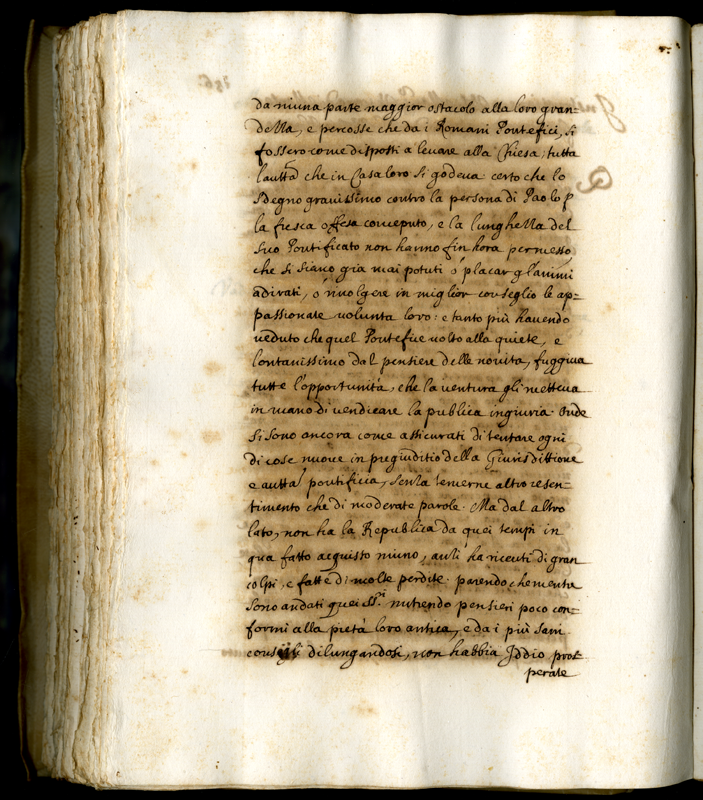 da niuna parte maggior ostacolo alla loro gran=
dezza, e percosse che da i Romani Pontefici, si
fossero come disposti a levare alla Chiesa, tutta
l'autta che in Casa loro si godeva: certo che lo
sdegno gravissimo contro la persona di Paolo p
la fresca offesa conceputo, e la lunghezza del
suo Pontificato non hanno fin hora permesso
che si siano gia mai potuti ò placar gl'animi
adirati, ò rivolgere in miglior conseglio le ap=
passionate volunta loro: e tanto più havendo
veduto che quel Pontefice volto alla quiete, e
lontanissimo dal pensiere delle novita, fuggiva
tutte l'opportunità, che la ventura gli metteva
in mano di vendicare la publica ingiuria. Onde
si sono ancora come assicurati di tentare ogni
di cose nuove in pregiuditio della Giurisdittione
e autta pontificia, senza temerne altro resen=
timento che di moderate parole. Ma dal altro
lato, non ha la Republica da quei tempi in
qua fatto acquisto niuno, anzi ha ricevuti di gran
colpi, e fatte di molte perdite. parendo che mentre
sono andati quei SSri nutrendo pensieri poco con=
formi alla pietà loro antica, e da i più sani
consigli dilungandosi, non habbia Iddio pros=
perate